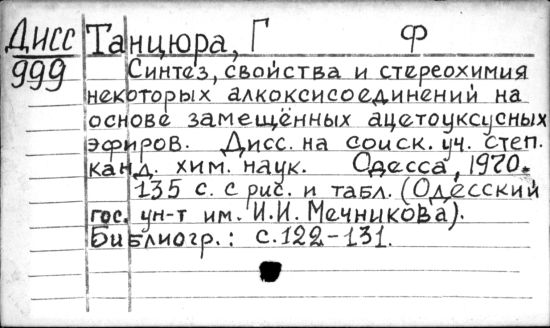 Дисс Танцюра, Г Ф
999 Синтез, свойства и стереохимия
некоторых алкоксисоединений на
основе замещённых ацетоуксусных
эфиров. Дисс. на соиск. уч. степ.
канд. хим. наук. Одесса, 1970.
135 с. с рис. и табл. (Одесский
гос. ун-т им. И.И. Мечникова).
Библиогр.: с.122-131.